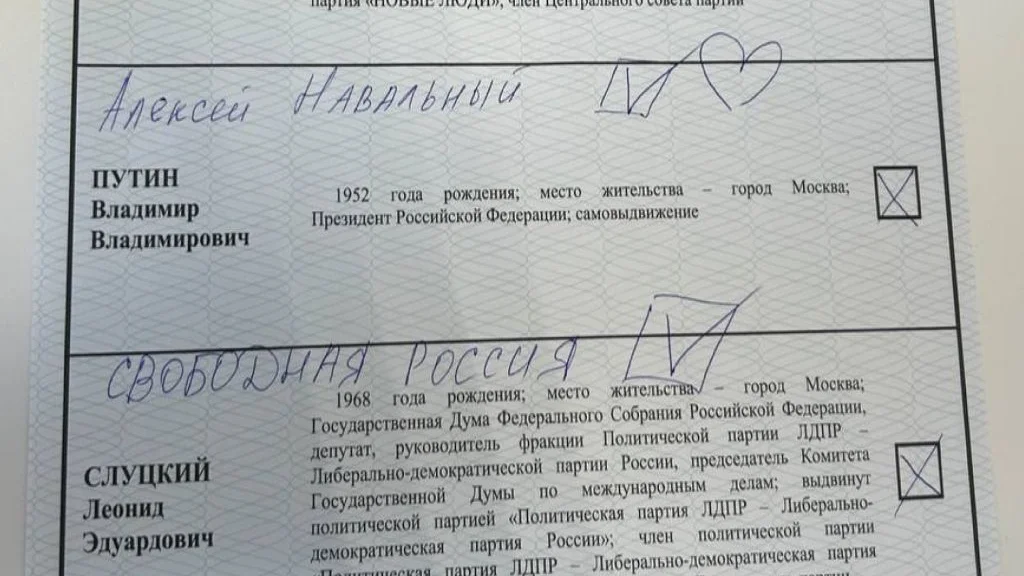 партия «НОВЫЕ ЛЮДИ», член Центрального совета партии
Алексей Навальный
ПУТИН
Владимир
Владимирович
1952 года рождения; место жительства – город Москва;
Президент Российской Федерации; самовыдвижение
СВОБОДНАЯ РОССИЯ
СЛУЦКИЙ
Леонид
Эдуардович
1968 года рождения; место жительства – город Москва;
Государственная Дума Федерального Собрания Российской Федерации,
депутат, руководитель фракции Политической партии ЛДПР –
Либерально-демократической партии России, председатель Комитета
Государственной Думы по международным делам; выдвинут
политической партией «Политическая партия ЛДПР – Либерально-
демократическая партия России»; член политической партии
«Политическая партия ЛДПР – Либерально-демократическая партия